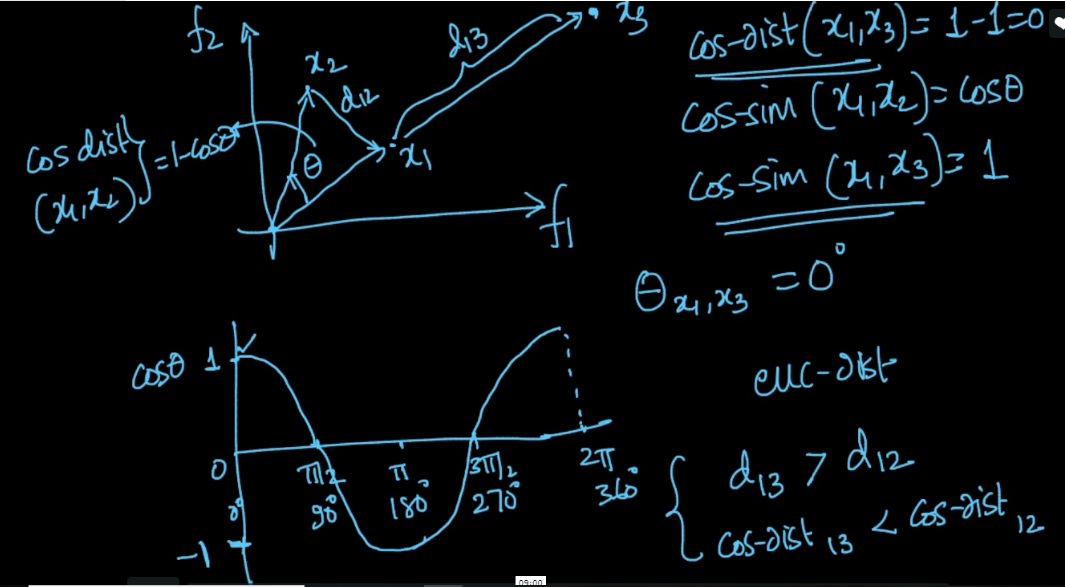 f₂
x₂
d₁₂
d₁₃
x₃
x₁
θ
f₁
cos dist
(x₁,x₂) } = 1-cosθ
cos-dist(x₁,x₃) = 1-1=0
cos-sim (x₁,x₂) = cosθ
cos-sim (x₁,x₃) = 1
θ x₁,x₃ = 0°
cosθ 1
0 π/2 π 3π/2 2π
0° 90° 180° 270° 360°
-1
euc-dist
d₁₃ > d₁₂
cos-dist ₁₃ < cos-dist ₁₂
09:00